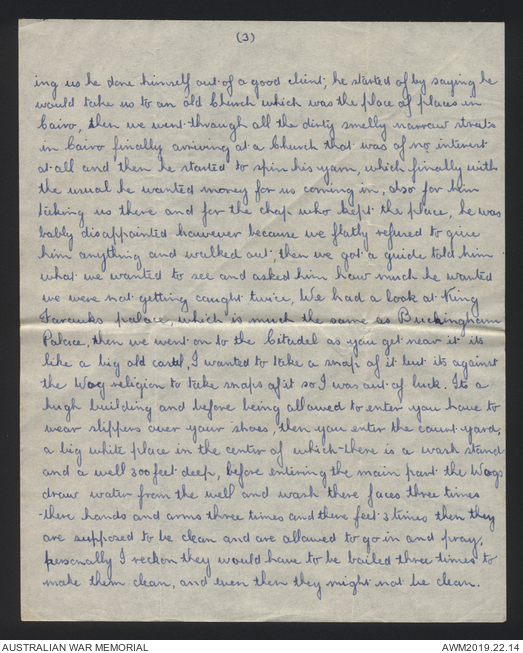 (3)
ing us he done himself out of a good client; he started of by saying he
would take us to an old Church which was the place of places in
Cairo, then we went through all the dirty smelly narrow streets
in Cairo finally arriving at a Church that was of no interest
at all and then he started to spin his yarn, which finally with
the usual he wanted money for us coming in, also for him
taking us there and for the chap who kept the place, he was
badly disappointed however because we flatly refused to give
him anything and walked out, then we got a guide told him
what we wanted to see and asked him how much he wanted
we were not getting caught twice, We had a look at King
Farouks palace, which is much the same as Buckingham
Palace, then we went on to the Citadel as you get near it its
like a big old castel, I wanted to take a snap of it but its against
the Wog religion to take snaps of it so I was out of luck. Its a
hugh building and before being allowed to enter you have to
wear slippers over your shoes, then you enter the court yard,
a big white place in the center of which there is a wash stand
and a well 300 feet deep, before entering the main part the Wogs
draw water from the well and wash there faces three times
there hands and arms three times and there feet 3 times then they
are supposed to be clean and are allowed to go in and pray,
personally I reckon they would have to be bailed three times to
make them clean, and even then they might not be clean.
AUSTRALIAN WAR MEMORIAL
AWM2019.22.14